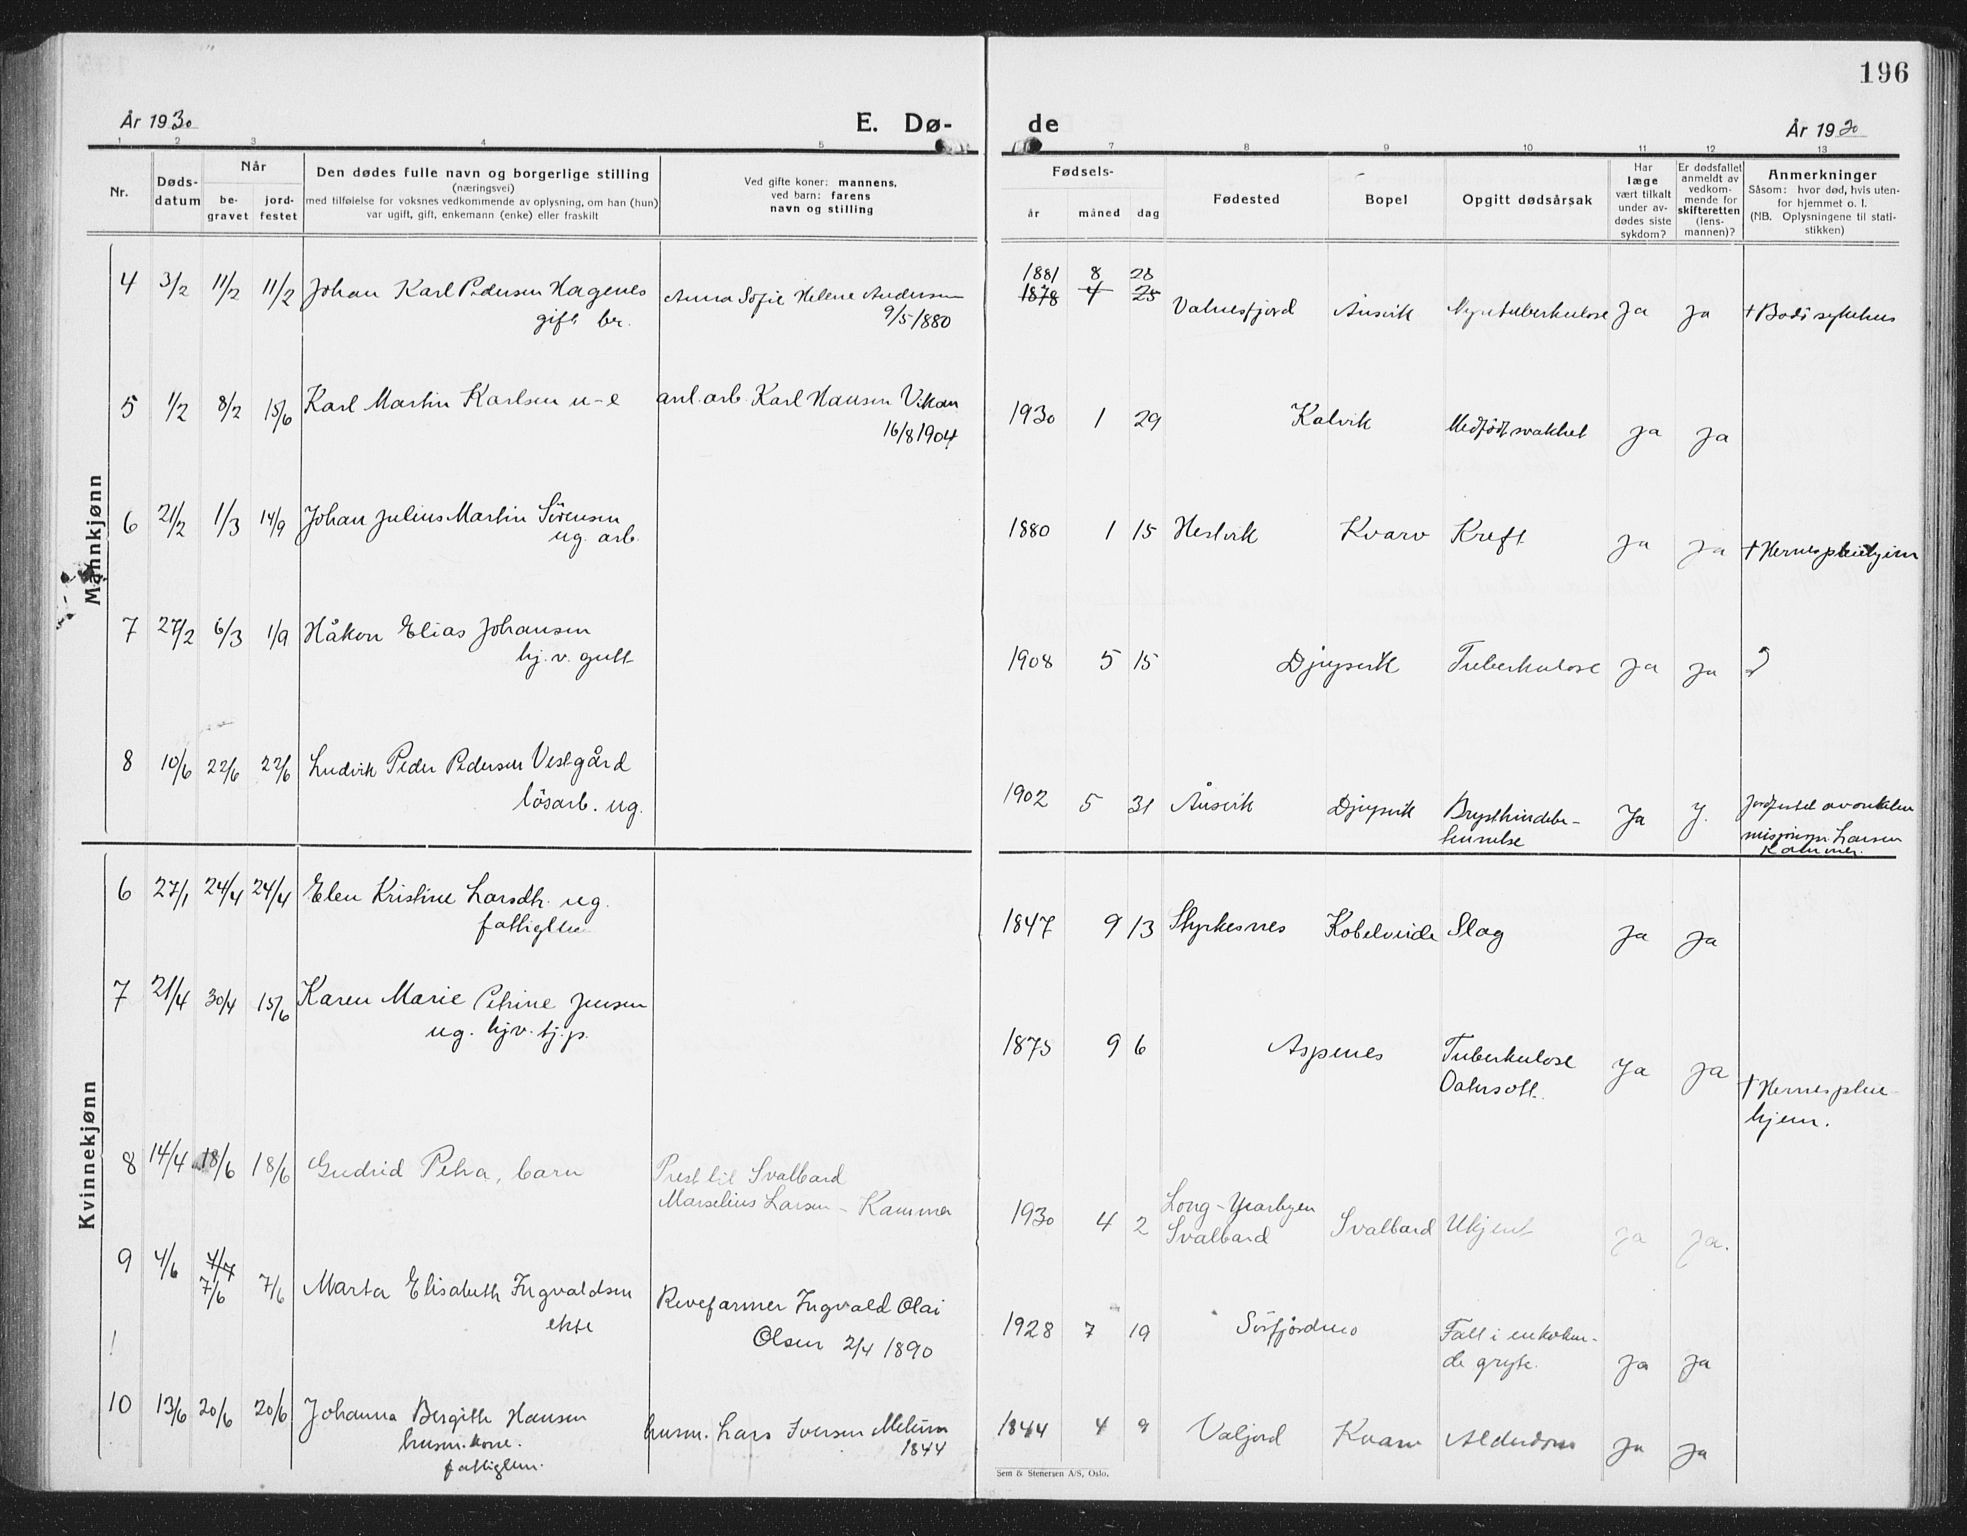 196
År 1930 E. Dø- de År 1930
1 2 3 4 5 7 8 9 10 11 12 13
Nr. Døds-datum Når be-gravet jord-festet Den dødes fulle navn og borgerlige stilling (næringsvei) med tilføielse for voksnes vedkommende av oplysning, om han (hun) var ugift, gift, enkemann (enke) eller fraskilt Ved gifte koner: mannens, ved barn: farens navn og stilling Fødsels- år måned dag Fødested Bopel Opgitt dødsårsak Har læge vært tilkalt under av-dødes siste sykdom? Er dødsfallet anmeldt av vedkom-mende for skifteretten (lens-mannen)? Anmerkninger Såsom: hvor død, hvis uten-for hjemmet o. l. (NB. Oplysningene til stati-stikken)
Mannkjønn
1881 8 28
4 3/2 11/2 11/2 Johan Karl Pedersen Hagenes Anna Sofie Helene Andersen 1878 4 25 Valnesfjord Ånsvik Nyretuberkulose Ja Ja + Bodö sykehus
gift br. 9/5 1880
5 1/2 8/2 15/6 Karl Martin Karlsen u-e anl. arb. Karl Hansen Vikan 1930 1 29 Kalvik Medfödt svakhet Ja Ja
16/8 1904
6 21/2 1/3 14/9 Johan Julius Martin Sörensen 1880 1 15 Hestvik Kvarv Kreft Ja Ja + Hernes pleiehjem
ug. arb.
7 27/2 6/3 1/9 Håkon Elias Johansen 1908 5 15 Djupvik Tuberkulose Ja Ja
hj. v. gutt
8 10/6 22/6 22/6 Ludvik Peder Pedersen Vestgård 1902 5 31 Ånsvik Djupvik Brysthindebe- Ja J. Jordfestet av onkelen
lösarb. ug. tennelse misjonspr. Larsen
Kammer.
Kvinnekjønn
6 27/1 24/4 24/4 Elen Kristine Larsdtr. ug. 1847 9 13 Styrkesnes Kobelveide Slag Ja Ja
fattiglem
7 21/4 30/4 15/6 Karen Marie Petrine Jensen 1875 9 6 Aspenes Tuberkulose Ja Ja + Hernes pleie-
ug. hjv. tj.p. Vatersott. hjem.
8 14/4 18/6 18/6 Gudrid Petra, barn Prest til Svalbard 1930 4 2 Long-Yearbyen Svalbard Ukjent Ja Ja.
Marselius Larsen - Kammer Svalbard
9 4/6 7/7 7/6 7/6 Marta Elisabeth Ingvaldsen Revefarmer Ingvald Olai 1928 7 19 Sörfjordmo Fall i en koken- Ja Ja
ekte Olsen 2/4 1890 de gryte.
10 13/6 20/6 20/6 Johanna Bergitte Hansen husm. Lars Iversen 1844 4 9 Valjord Kvarv Alderdom Ja Ja
husm. kone. 1844
fattiglem.
Sem & Stenersen A/S, Oslo.